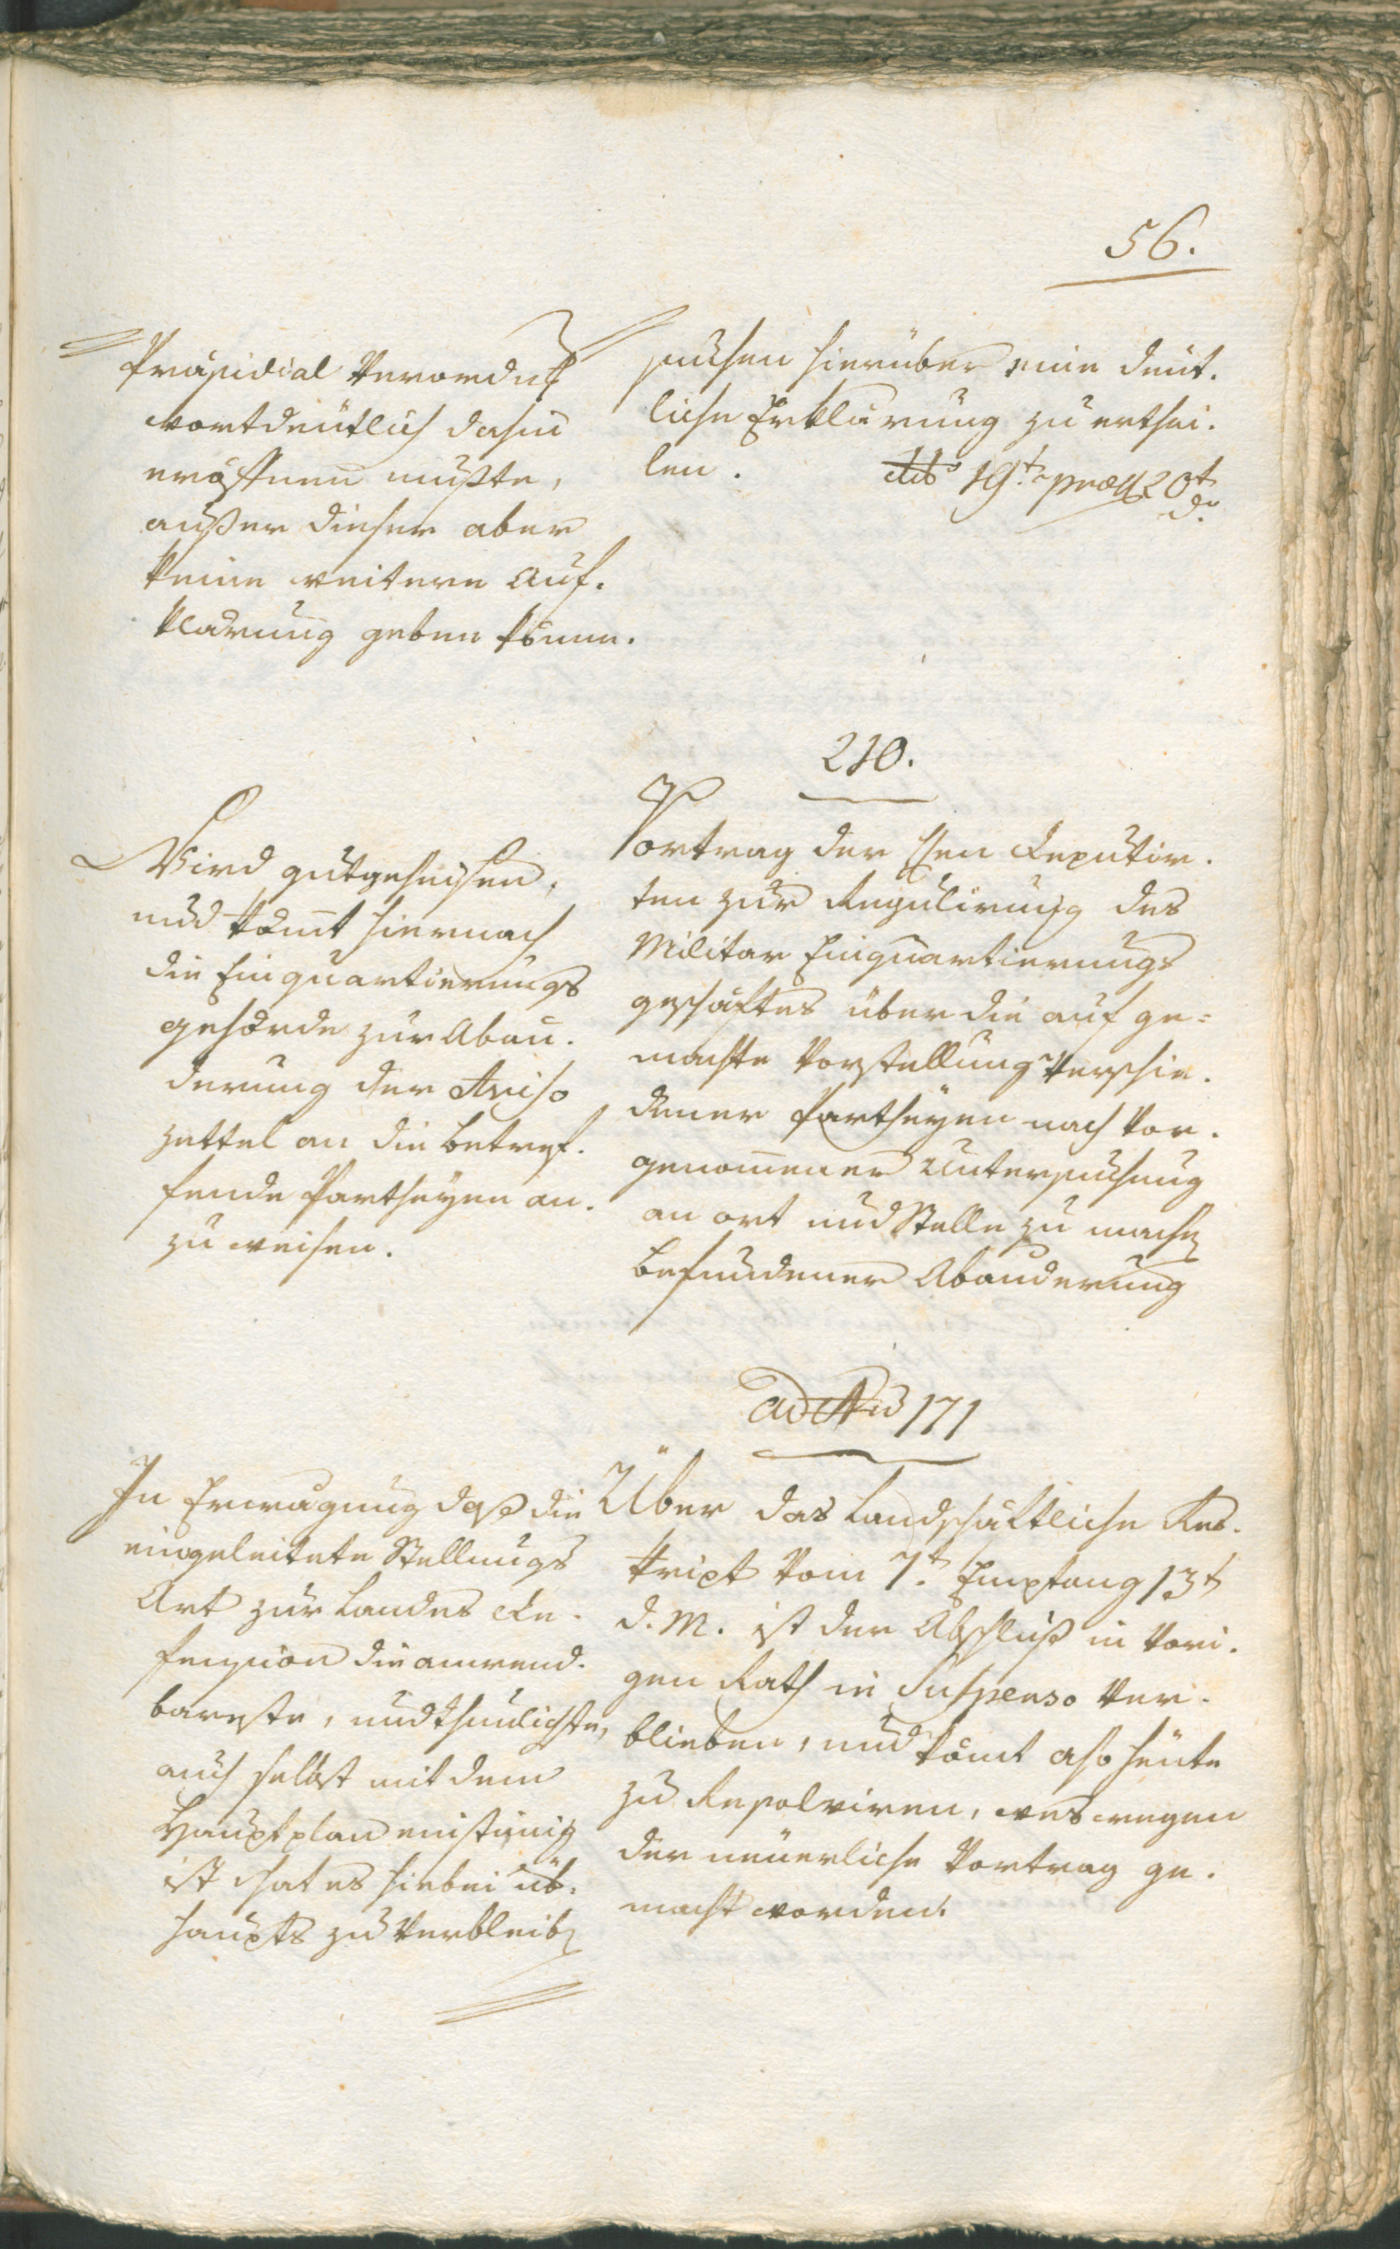 56.
Präsidial Verordng
wortdeutlich dahin
eröffnen mußte,
außer dieser aber
keine weitere Auf.
klärung geben könne.
suchen hierüber eine deut.
liche Erklärung zu erthei.
len. ddto 19t præs 20t
d.
210.
Wird gutgeheißen,
und kom̅t hiernach
die Einquartierungs
gehörde zur Abän.
derung der Aviso
zettel an die betref.
fende Partheyen an.
zu weisen.
Vortrag der Hen Deputir.
ten zur Regulirung des
Militar Einquartierungs
geschäftes über die auf ge=
machte Vorstellung verschie.
dener Partheyen nach vor.
genom̅ener Untersuchung
an ort und Stelle zu mach
befundener Abänderung
ad Nu 171
In Erwägung daß die
eingeleitete Stellungs
Art zur Landes De.
fension die anwend.
bareste, und thunlichste,
auch selbst mit dem
Hauptplan einstim̅ig
ist hat es hiebei üb.
haupts zu verbleib
Über das Landschäftliche Res.
kript vom 7t Empfang 13t
d. M. ist der Abschluß in vori.
gen Rath in Suspenso ver.
blieben, und kom̅t also heute
zu Resolviren, wes wegen
der neuerliche Vortrag ge.
macht worden.